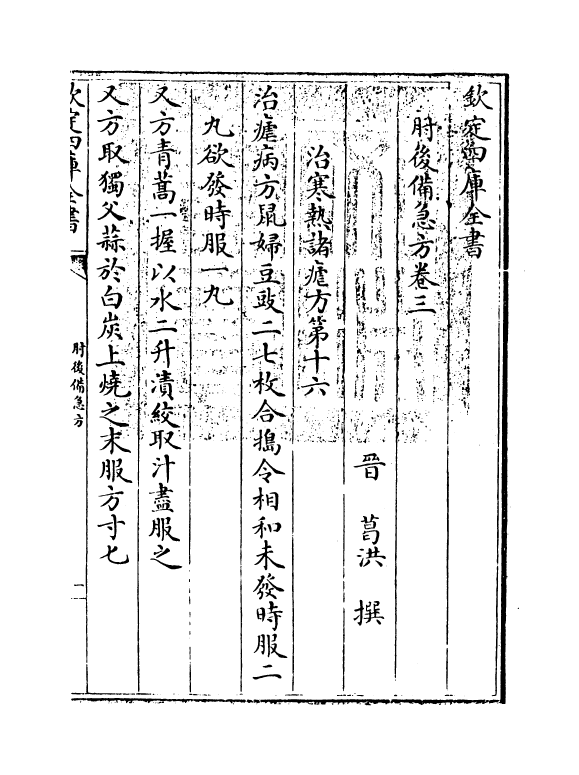 欽定四庫全書
肘後備急方卷三
晉 葛洪 撰
治寒熱諸瘧方第十六
治瘧病方鼠婦豆豉二七枚合搗令相和未發時服二
丸欲發時服一丸
又方青蒿一握以水二升漬絞取汁盡服之
又方取獨父蒜於白炭上燒之末服方寸匕
欽定四庫全書
肘後備急方
一